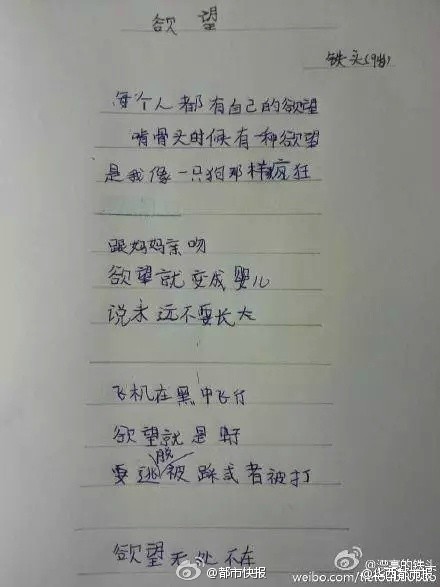 欲望
铁头(9岁)
每个人都有自己的欲望
啃骨头时候有一种欲望
是我像一只狗那样疯狂
跟妈妈亲吻
欲望就变成婴儿
说永远不要长大
飞机在黑中飞行
欲望就是野
要逃脱被踩或者被打
欲望无处不在
@都市快报